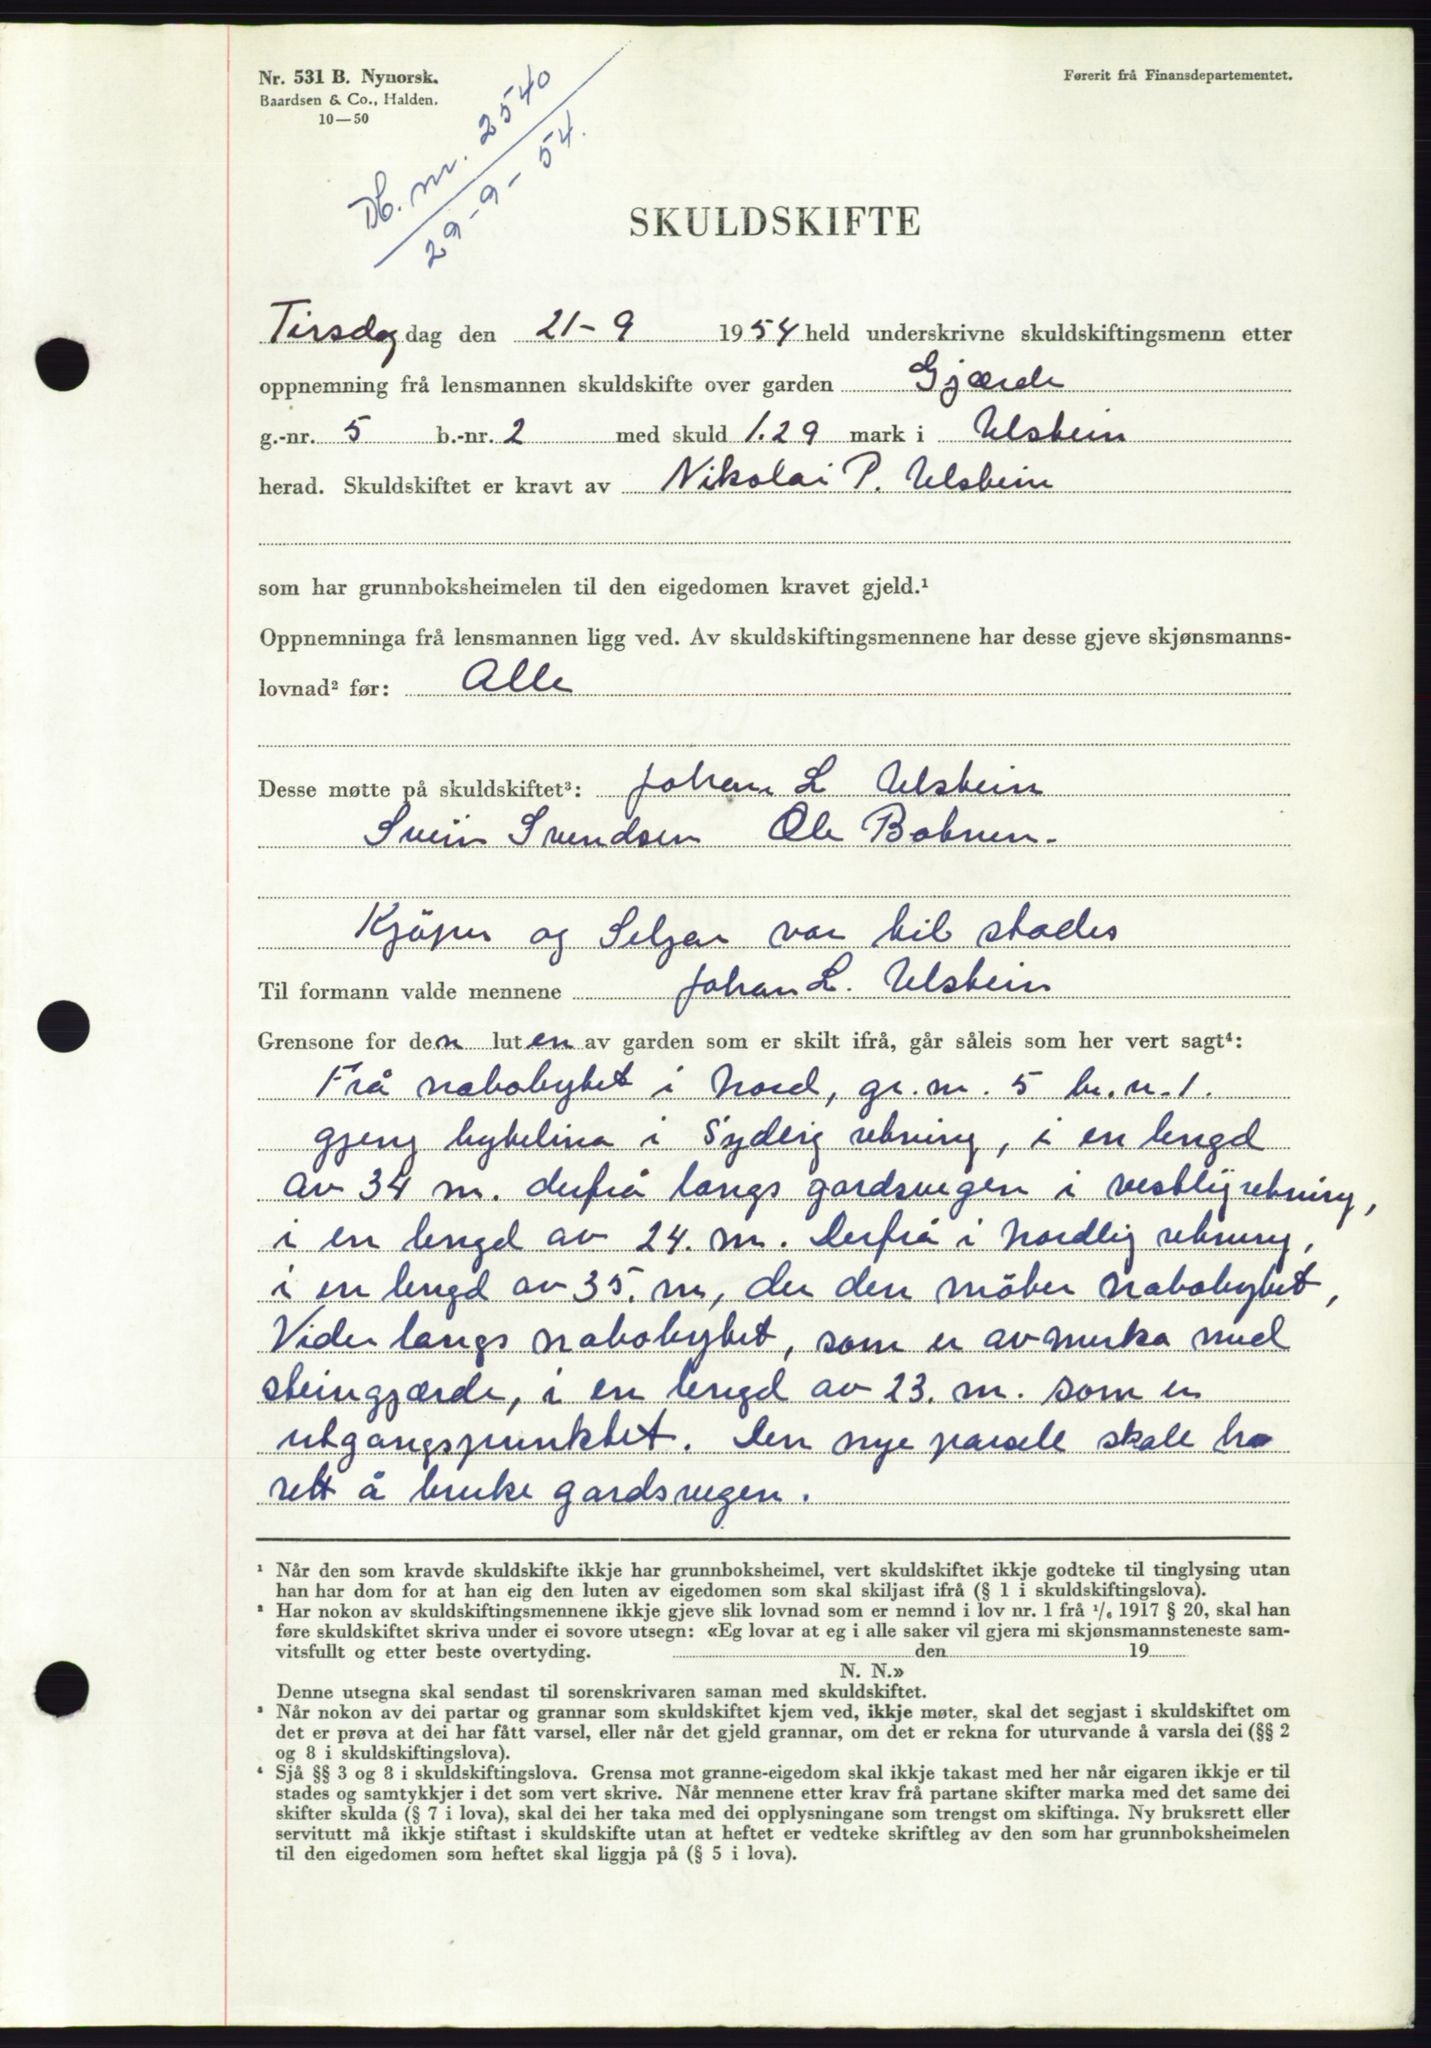 Nr. 531 B. Nynorsk.
Baardsen & Co., Halden.
10—50
Førerit frå Finansdepartementet.
Db. nr. 2540
29-9-54.
SKULDSKIFTE
Tirsdag dag den 21-9 1954 held underskrivne skuldskiftingsmenn etter
oppnemning frå lensmannen skuldskifte over garden Gjærde
g.-nr. 5 b.-nr. 2 med skuld 1.29 mark i Ulstein
herad. Skuldskiftet er kravt av Nikolai P. Ulstein
som har grunnboksheimelen til den eigedomen kravet gjeld.¹
Oppnemninga frå lensmannen ligg ved. Av skuldskiftingsmennene har desse gjeve skjønsmanns-
lovnad² før: Alle
Desse møtte på skuldskiftet³: Johan L Ulstein
Svein Svendsen Ole Botnen.
Kjöper og Seljar var til stades
Til formann valde mennene Johan L. Ulstein
Grensone for den luten av garden som er skilt ifrå, går såleis som her vert sagt⁴:
Frå nabobytet i Nord, gr. nr. 5 br. n. 1.
gjeng bytelina i Syderig retning, i en lengd
av 34 m. derfrå langs gardsvegen i vestlig retning,
i en lengd av 24. m. Derfrå i Nordlig retning,
i en lengd av 35. m, der den möter nabobytet,
Vider langs nabobytet, som er avmerka med
steingjærde, i en lengd av 23. m. som er
utgangspunktet. Den nye parsele skale ha
rett å bruke gardsvegen.
¹ Når den som kravde skuldskifte ikkje har grunnboksheimel, vert skuldskiftet ikkje godteke til tinglysing utan
han har dom for at han eig den luten av eigedomen som skal skiljast ifrå (§ 1 i skuldskiftingslova).
² Har nokon av skuldskiftingsmennene ikkje gjeve slik lovnad som er nemnd i lov nr. 1 frå ¹/₆ 1917 § 20, skal han
føre skuldskiftet skriva under ei sovore utsegn: «Eg lovar at eg i alle saker vil gjera mi skjønsmannsteneste sam-
vitsfullt og etter beste overtyding. den 19
N. N.»
Denne utsegna skal sendast til sorenskrivaren saman med skuldskiftet.
³ Når nokon av dei partar og grannar som skuldskiftet kjem ved, ikkje møter, skal det segjast i skuldskiftet om
det er prøva at dei har fått varsel, eller når det gjeld grannar, om det er rekna for uturvande å varsla dei (§§ 2
og 8 i skuldskiftingslova).
⁴ Sjå §§ 3 og 8 i skuldskiftingslova. Grensa mot granne-eigedom skal ikkje takast med her når eigaren ikkje er til
stades og samtykkjer i det som vert skrive. Når mennene etter krav frå partane skifter marka med det same dei
skifter skulda (§ 7 i lova), skal dei her taka med dei opplysningane som trengst om skiftinga. Ny bruksrett eller
servitutt må ikkje stiftast i skuldskifte utan at heftet er vedteke skriftleg av den som har grunnboksheimelen
til den eigedomen som heftet skal liggja på (§ 5 i lova).